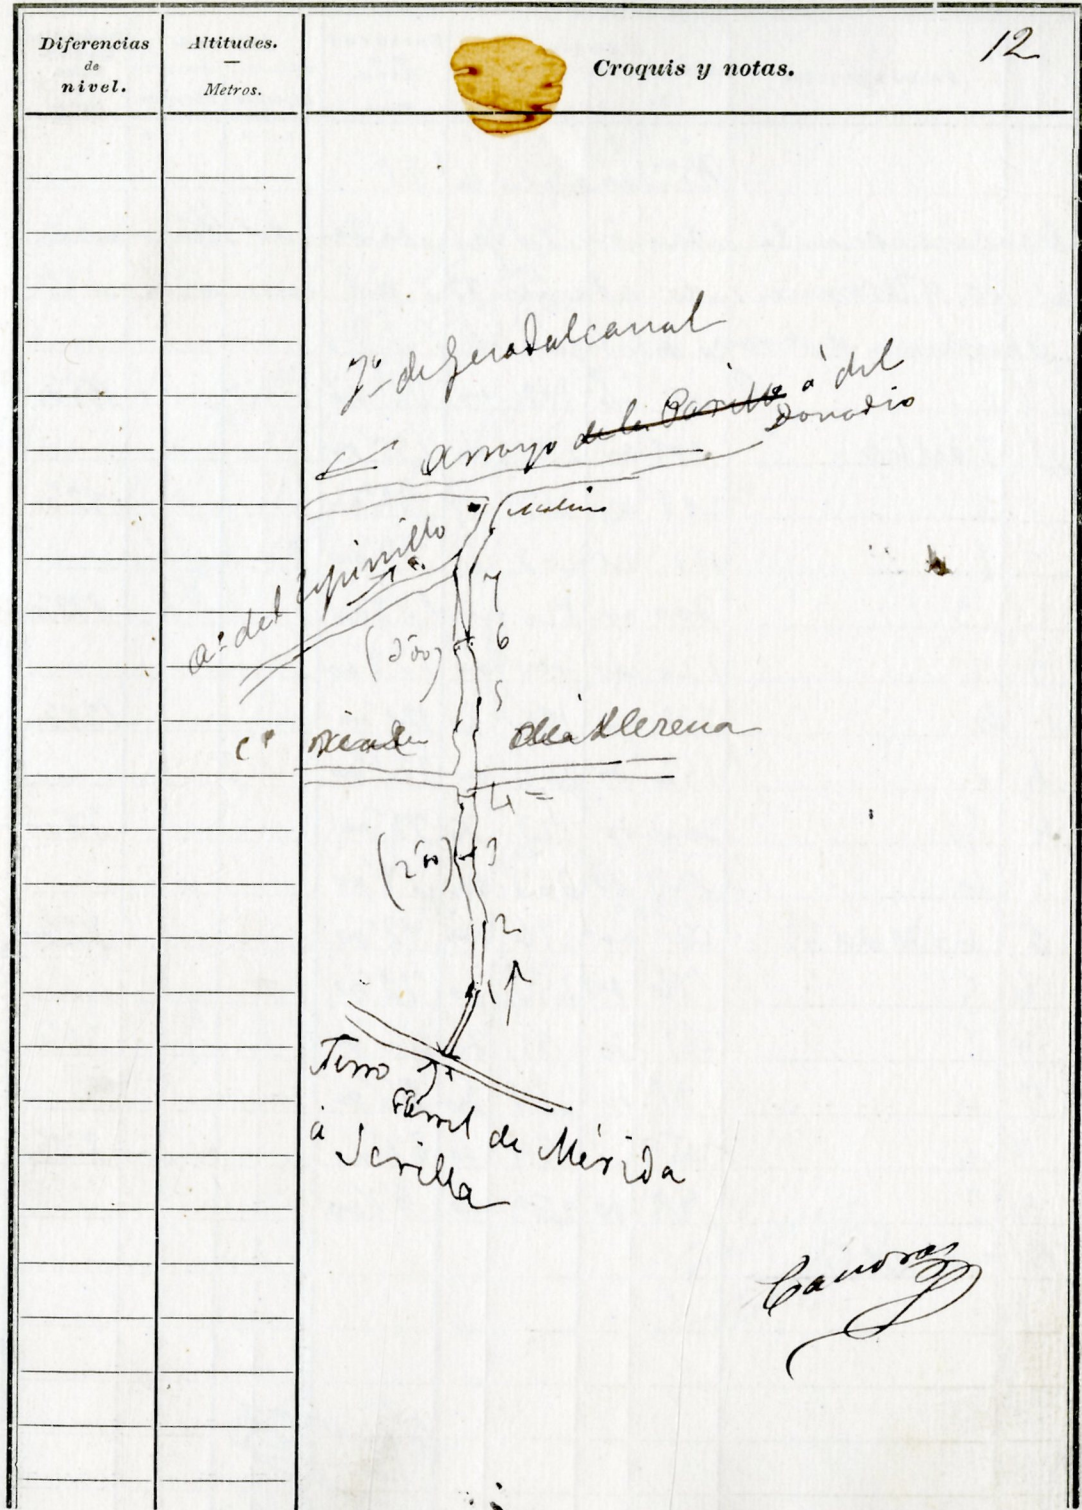 Diferencias
de
nivel.
Altitudes.
Metros.
Croquis y notas.
12
Tº de Guadalcanal
Arroyo de la Parrilla ó del
Donadio
Molino
aº del Espinillo
7
6
(2'00)
5
Cº
de á Llerena
4
(2'00) 3
2
1
Ferro
carril de Mérida
á Sevilla
Cánovas